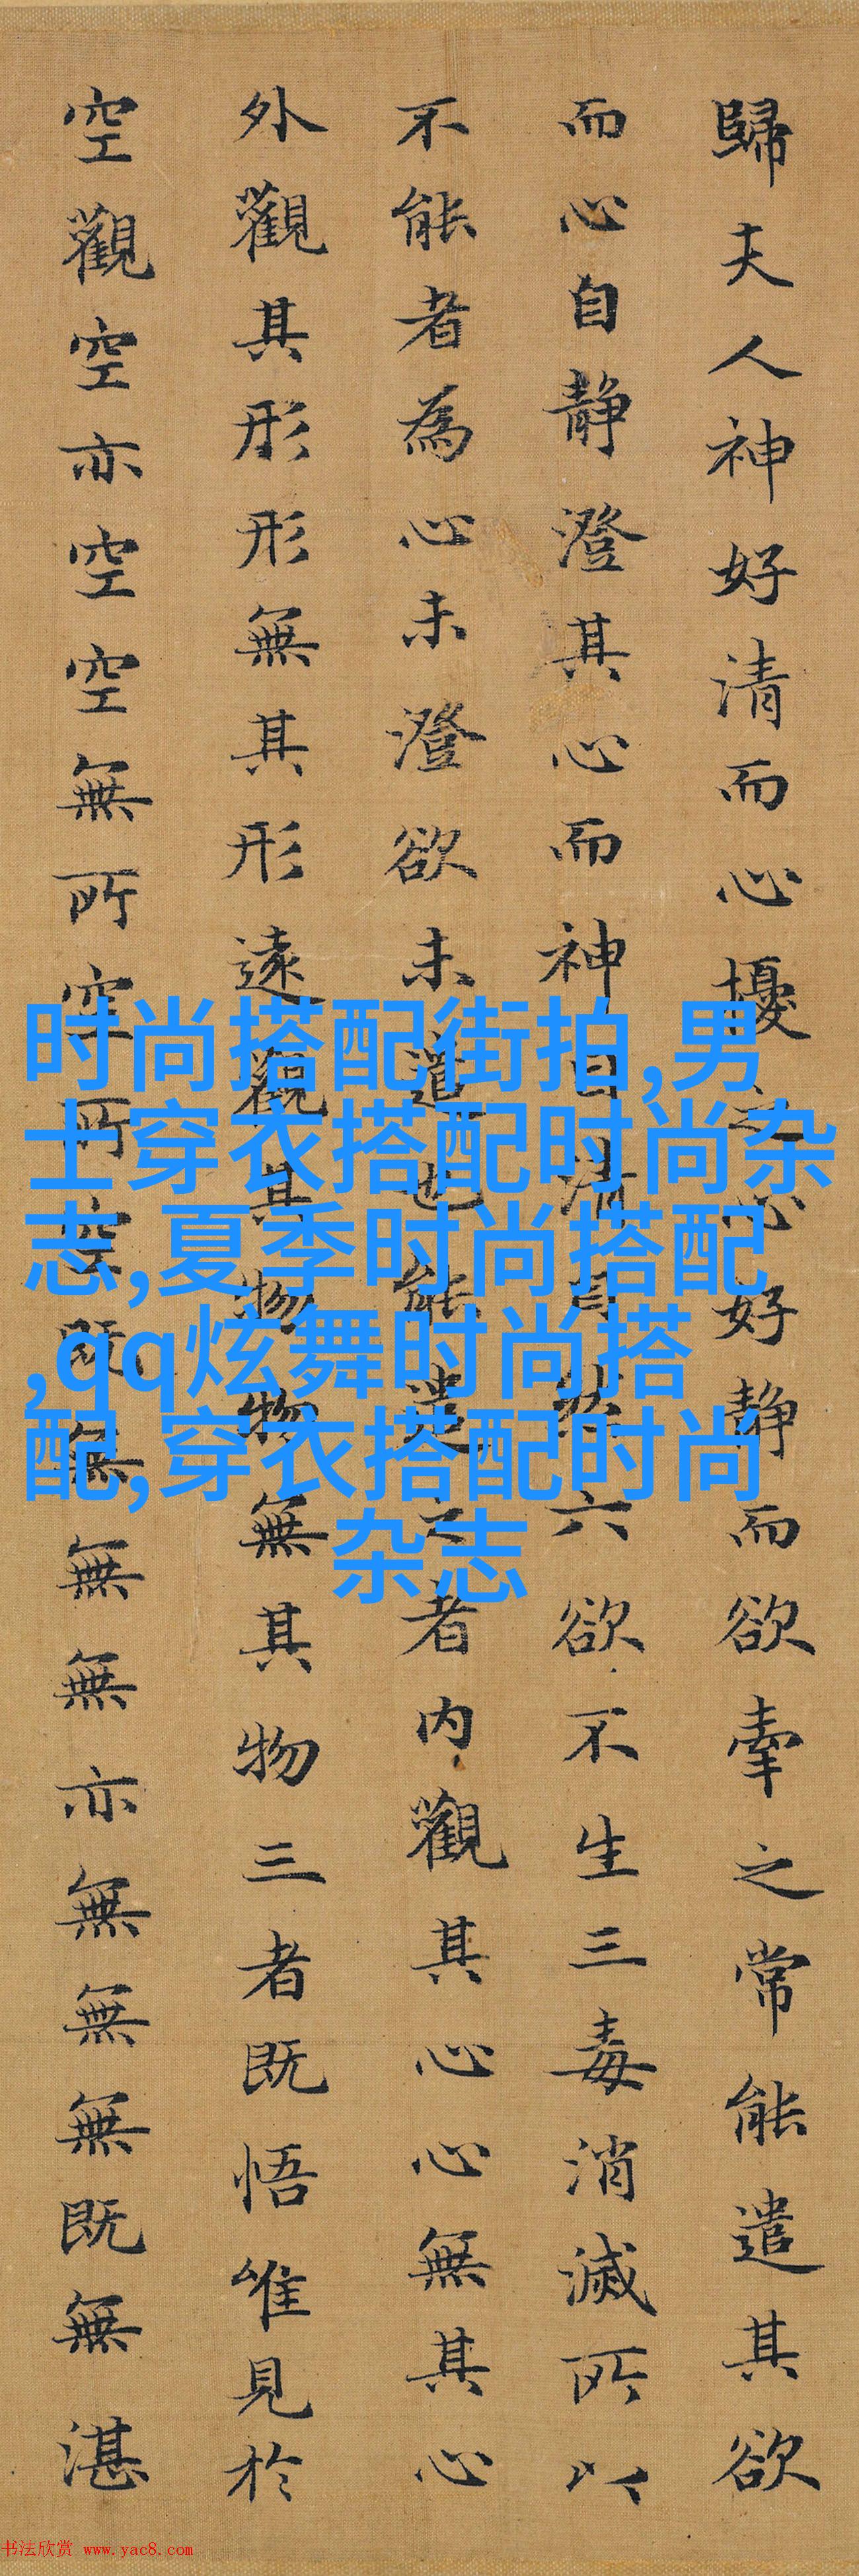 歸夫人神好清而心擾之心好静而欲牽之常能遣其欲
而心自静澄其心而神自清自然六欲不生三毒消滅所以
不能者為心未澄欲未遣也能遣之者内觀其心心無其心
外觀其形形無其形遠觀其物物無其物三者既悟唯見於
空觀空亦空空無所空所空既無無無亦無無無既無湛
时尚搭配街拍,男
士穿衣搭配时尚杂
志,夏季时尚搭配
,qq炫舞时尚搭
配,穿衣搭配时尚
杂志
书法欣赏 www.yac8.com